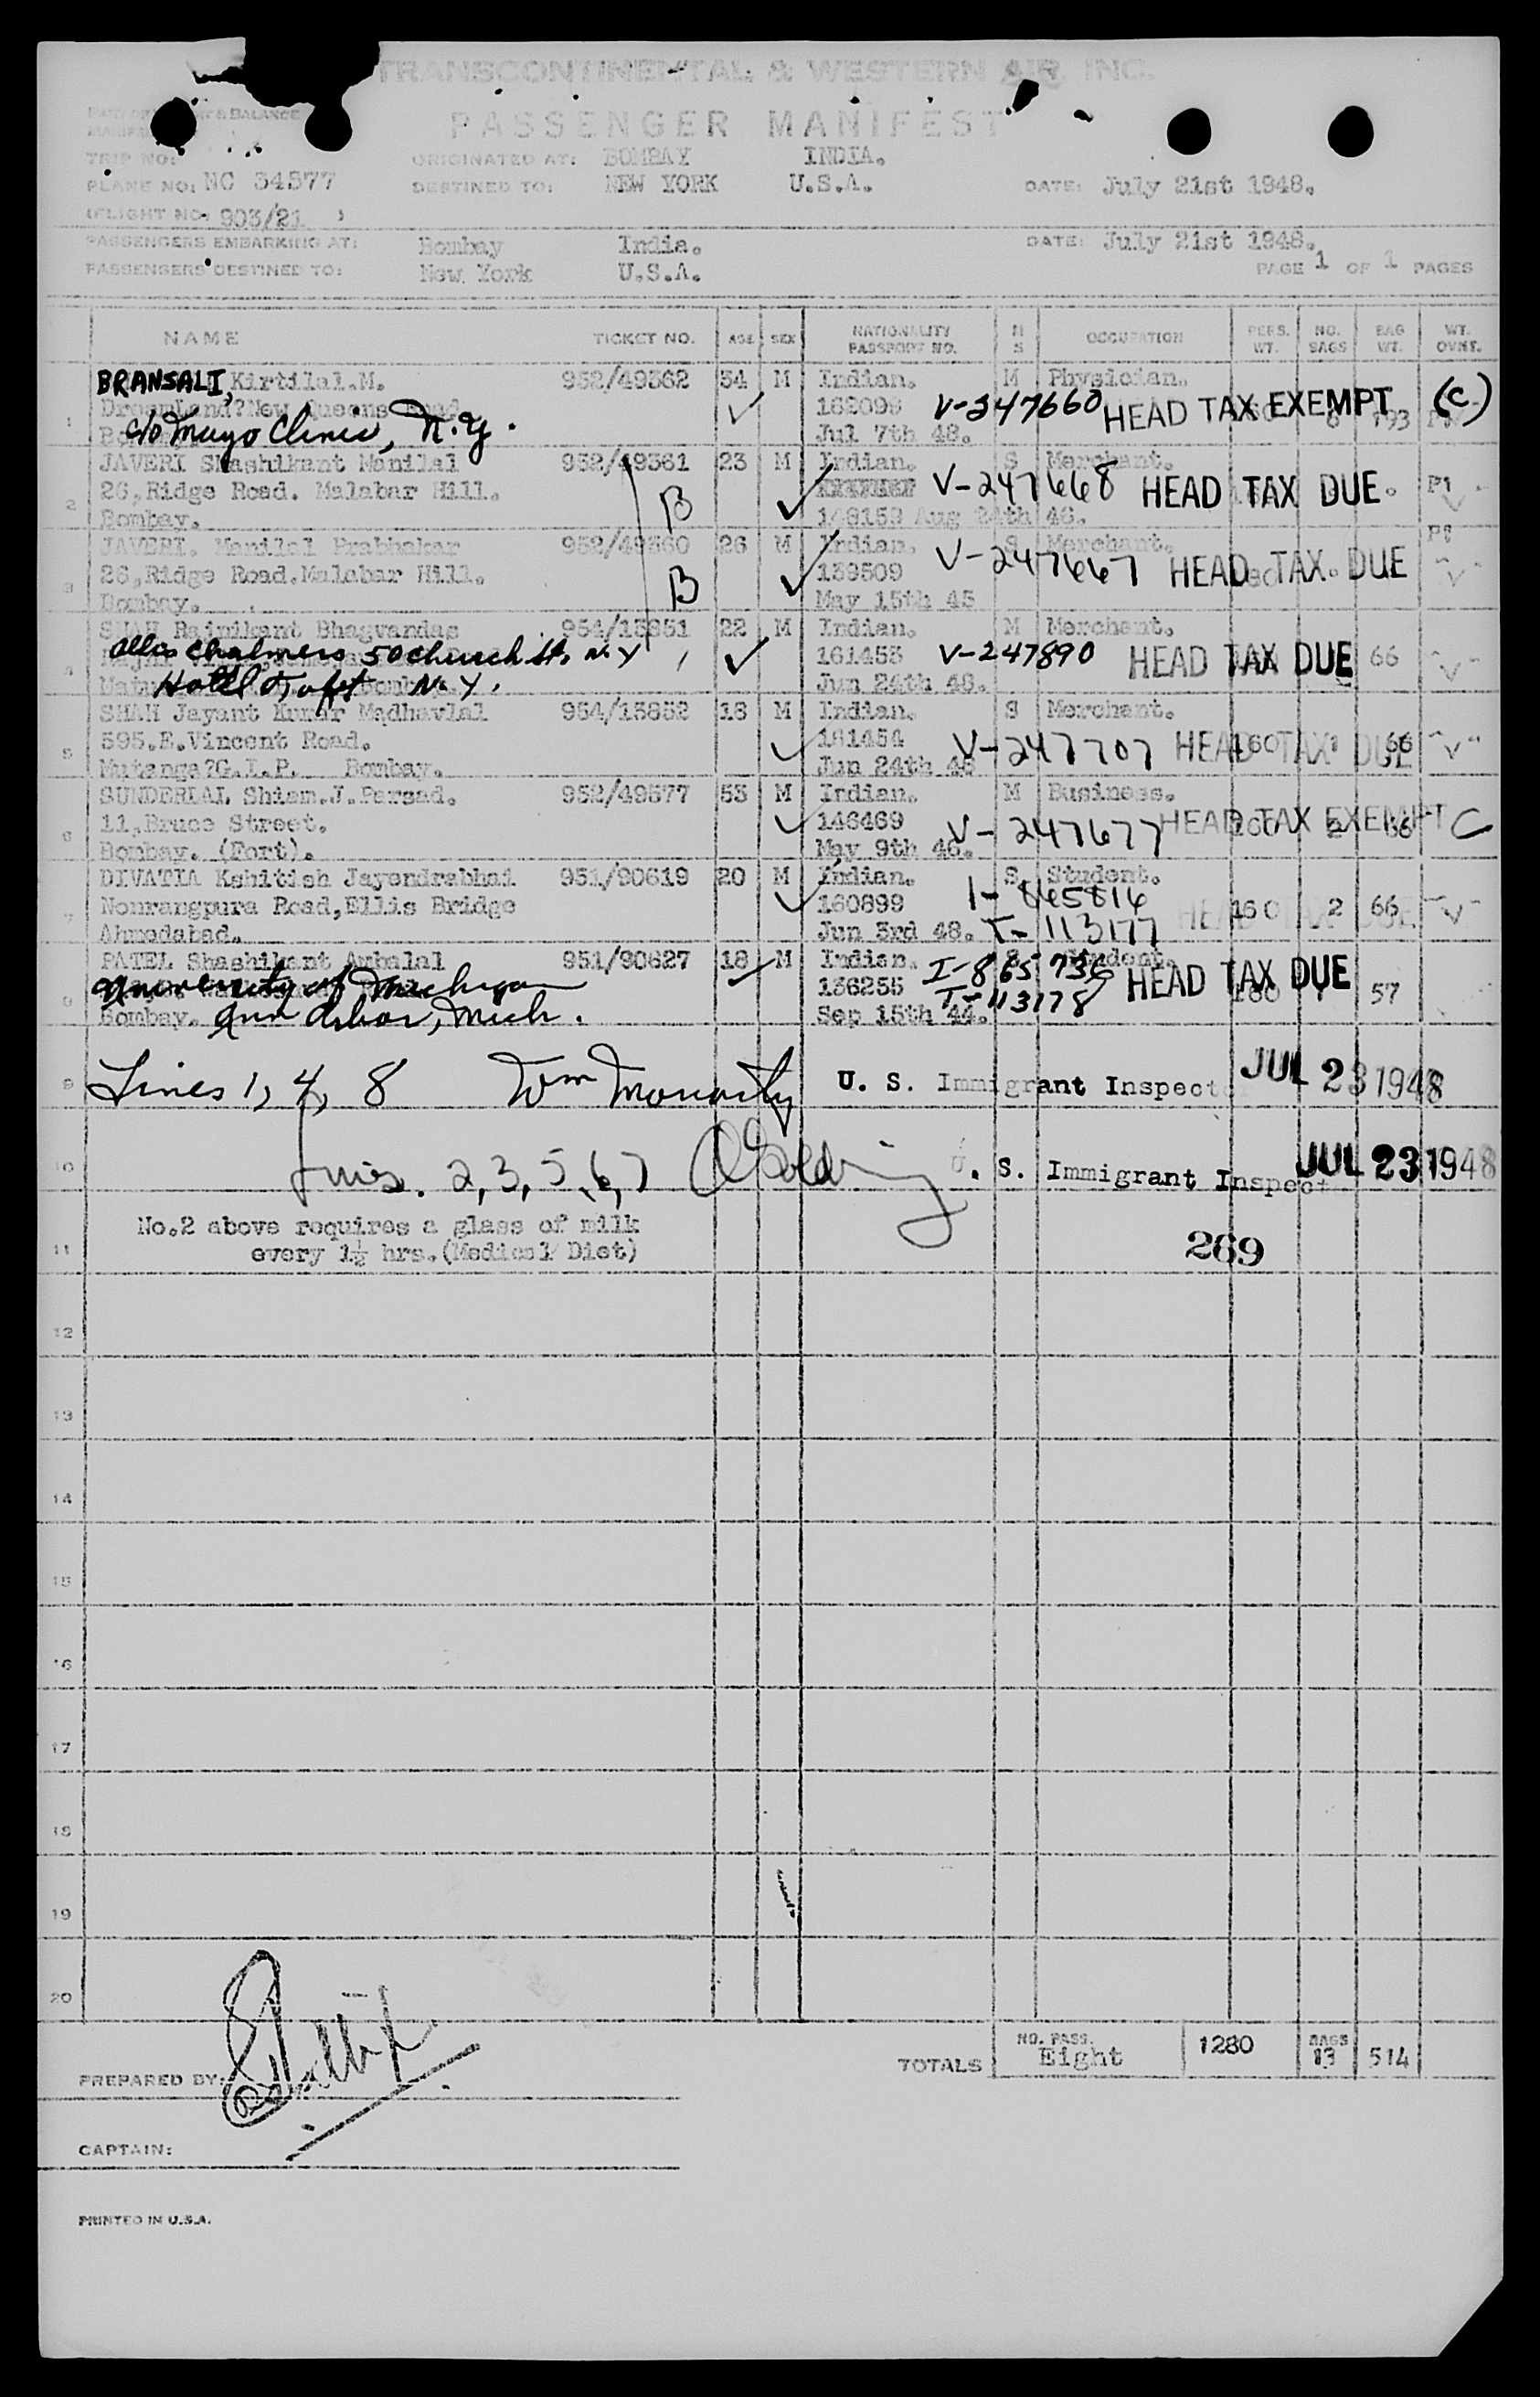 TRANSCONTINENTAL & WESTERN AIR, INC.
PASSENGER MANIFEST
BALANCE
TRIP NO:
PLANE NO: NC 34577
(FLIGHT NO. 903/21 )
ORIGINATED AT: BOMBAY INDIA.
DESTINED TO: NEW YORK U.S.A.
DATE: July 21st 1948.
PASSENGERS EMBARKING AT: Bombay India.
PASSENGERS DESTINED TO: New York U.S.A.
DATE: July 21st 1948.
PAGE 1 OF 1 PAGES
NAME TICKET NO. AGE SEX NATIONALITY PASSPORT NO. M S OCCUPATION PERS. WT. NO. BAGS BAG WT. WT. OVNT.
1 BRANSALI, Kirtilal.M. 952/49362 54 M Indian. M Physician.
DreamLand?New Queens Road 162099 V-247660 HEAD TAX EXEMPT (C)
c/o Mayo Clinic, N.Y. Jul 7th 48.
2 JAVERI Shashikant Manilal 952/49361 23 M Indian. S Merchant.
26,Ridge Road. Malabar Hill. B V-247668 HEAD TAX DUE
Bombay. 149153 Aug 24th 46.
3 JAVERI. Manilal Prabhakar 952/49360 26 M Indian. S Merchant.
26,Ridge Road.Malabar Hill. B 139509 V-247667 HEAD TAX DUE
Bombay. May 15th 45
4 SHAH Rajnikant Bhagvandas 954/13851 22 M Indian. M Merchant.
Allis Chalmers 50 Church St. N.Y 161453 V-247890 HEAD TAX DUE 66 "V"
Hotel Taft N.Y. Jun 24th 48.
5 SHAH Jayant Kumar Madhavlal 954/13852 18 M Indian. S Merchant.
595.E.Vincent Road. 161454 V-247707 HEAD TAX DUE 160 1 66 "V"
Mutanga?G.I.P. Bombay. Jun 24th 48
6 SUNDERLAL Shiam.J.Persad. 952/49577 53 M Indian. M Business.
11,Bruce Street. 146469 V-247677 HEAD TAX EXEMPT 160 2 66 C
Bombay. (Fort). May 9th 46.
7 DIVATIA Kshitish Jayendrabhai 951/90619 20 M Indian. S Student.
Nourangpura Road,Ellis Bridge 160899 I-865816 160 2 66 "V"
Ahmedabad. Jun 3rd 48. T-113177
8 PATEL Shashikant Ambalal 951/90627 18 M Indian. S Student.
University of Michigan 136255 I-865736 HEAD TAX DUE 160 1 57
Bombay. Ann Arbor, Mich. Sep 15th 44. T-113178
9 Lines 1, 4, 8 Wm Moriarty U. S. Immigrant Inspector JUL 23 1948
10 Lines. 2,3,5,6,7 Golding U. S. Immigrant Inspect JUL 23 1948
11 No.2 above requires a glass of milk
every 1½ hrs.(Medical Diet)
269
12
13
14
15
16
17
18
19
20
TOTALS NO. PASS. Eight 1280 BAGS 13 514
PREPARED BY:
CAPTAIN:
PRINTED IN U.S.A.